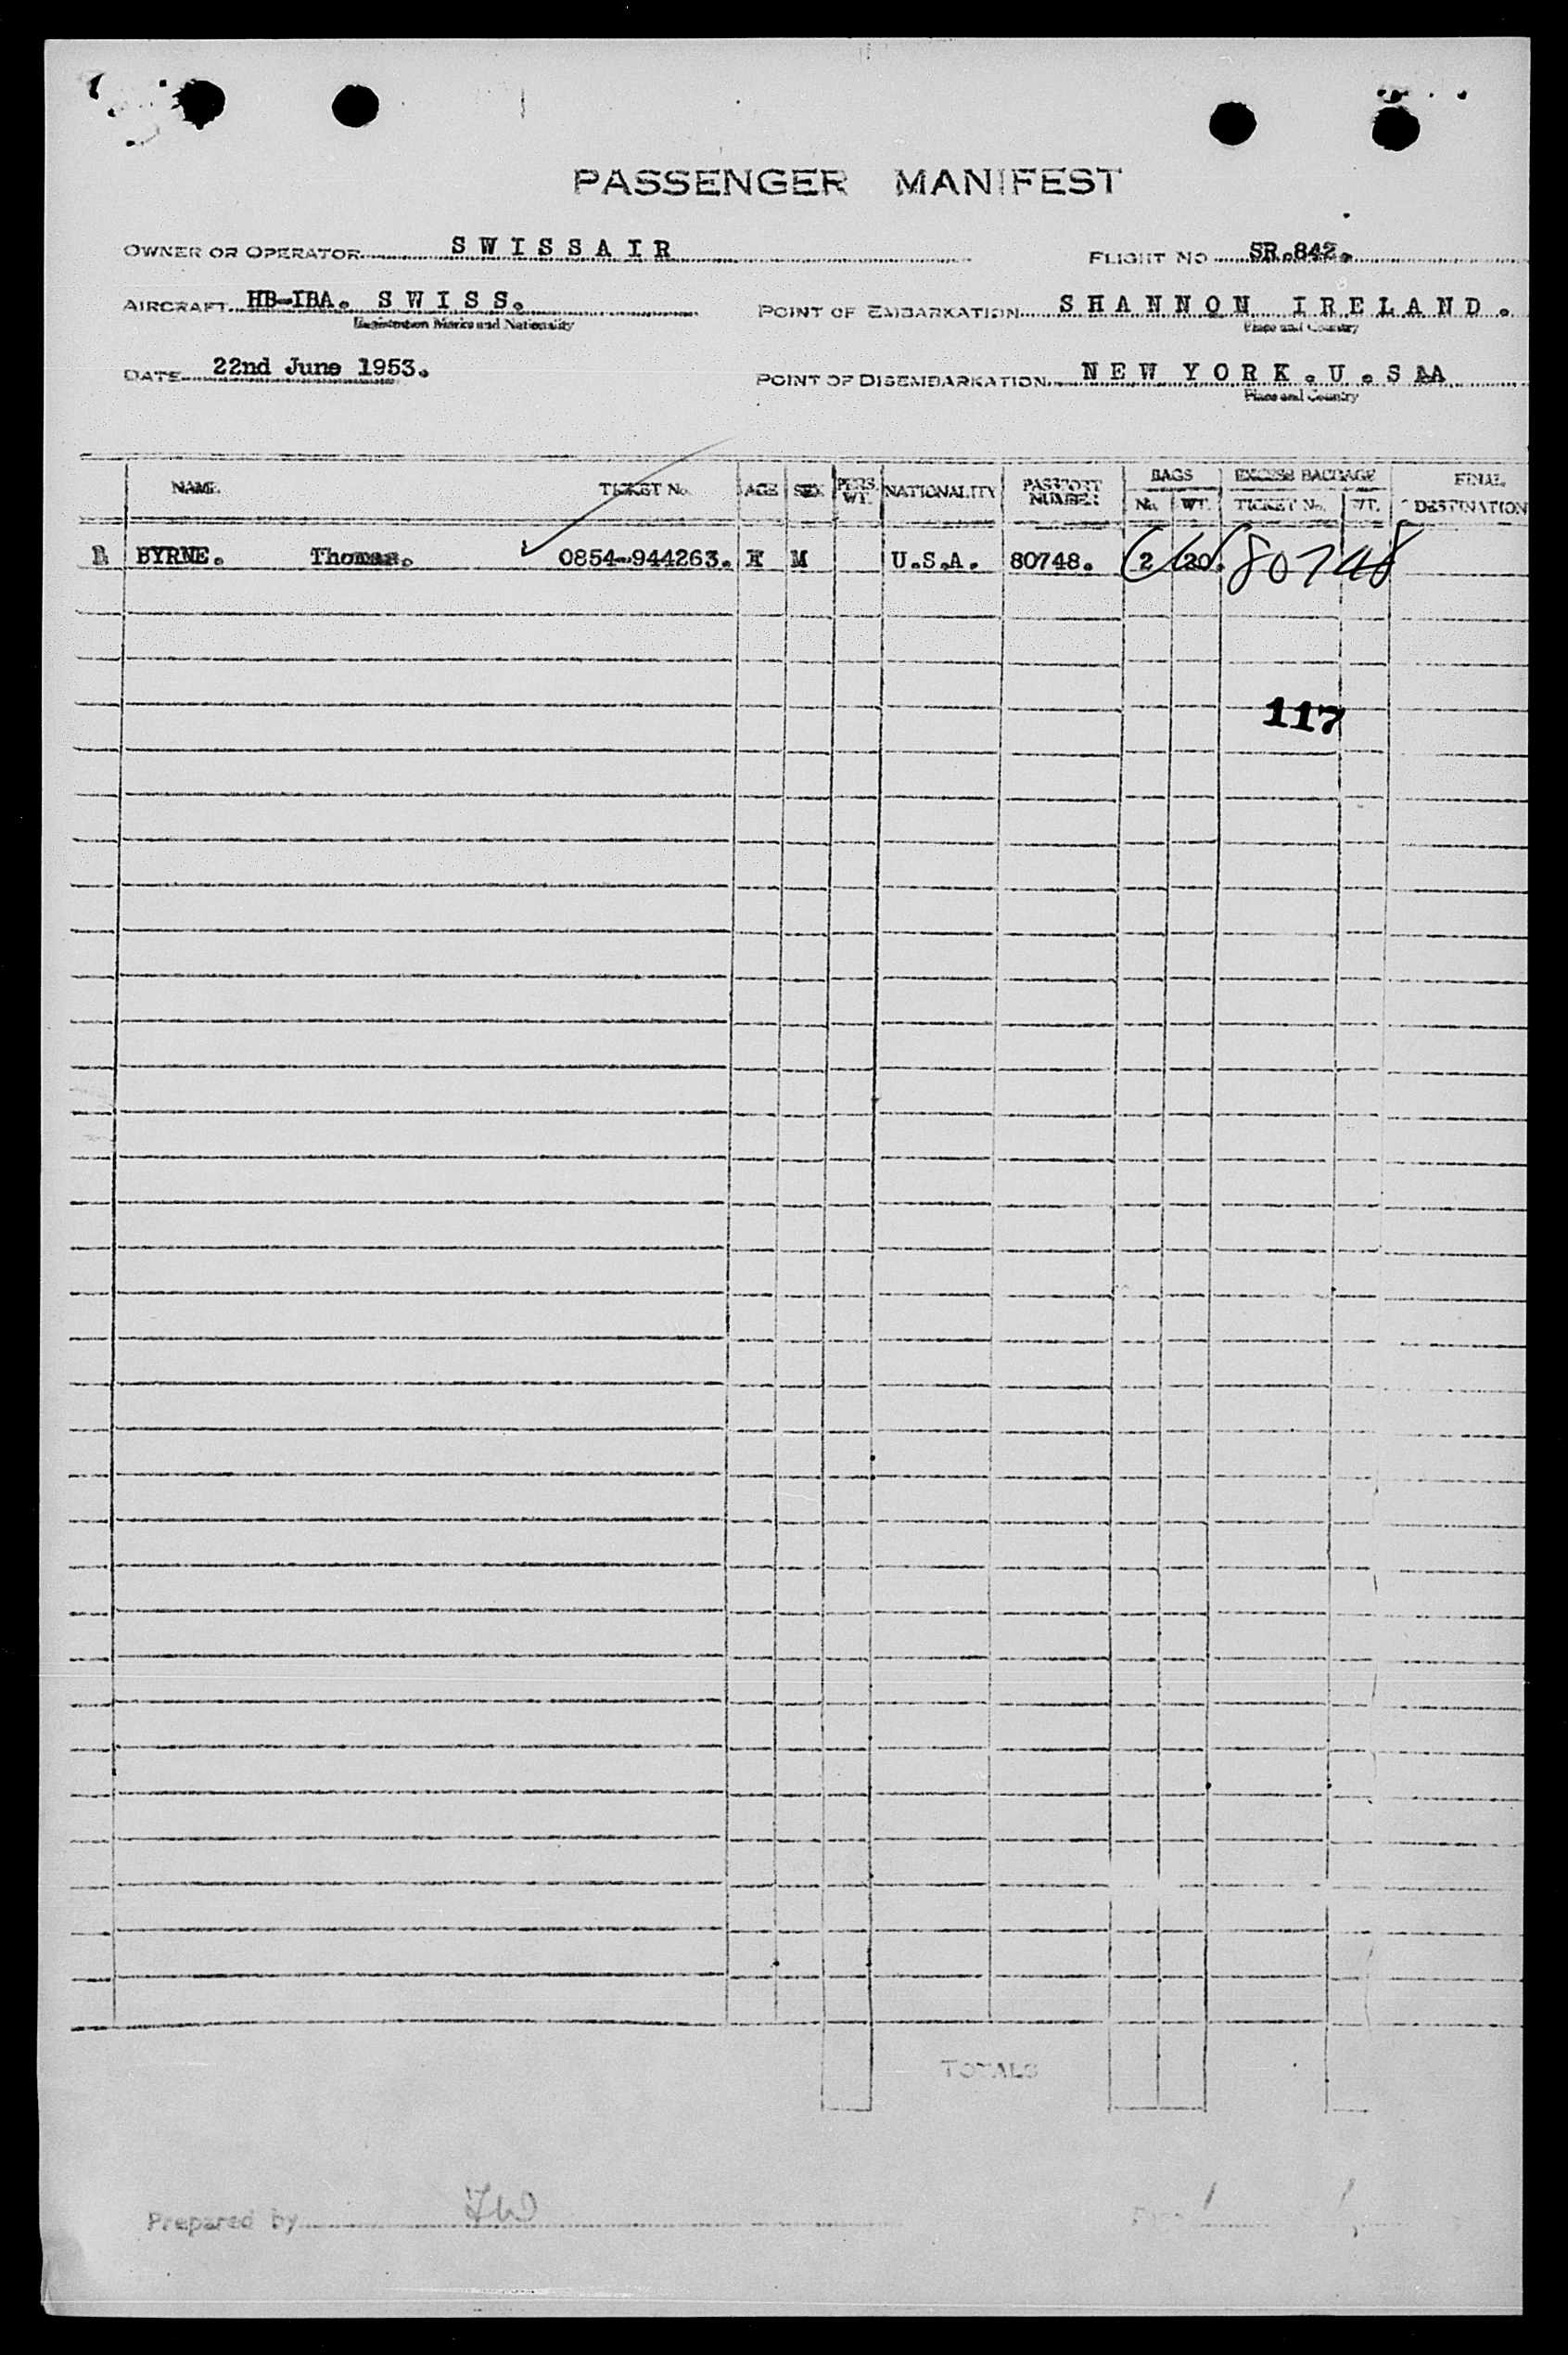 PASSENGER MANIFEST
OWNER OR OPERATOR SWISSAIR FLIGHT NO SR.842.
AIRCRAFT HB-IBA. SWISS. POINT OF EMBARKATION SHANNON IRELAND.
Registration Marks and Nationality Place and Country
DATE 22nd June 1953. POINT OF DISEMBARKATION NEW YORK.U.S.A
Place and Country
NAME TICKET No. AGE SEX PERS. WT. NATIONALITY PASSPORT NUMBER BAGS EXCESS BAGGAGE FINAL DESTINATION
No. WT. TICKET No. WT.
BYRNE. Thomas. 0854-944263. M U.S.A. 80748. 2 20. 80748
117
TOTALS
Prepared by